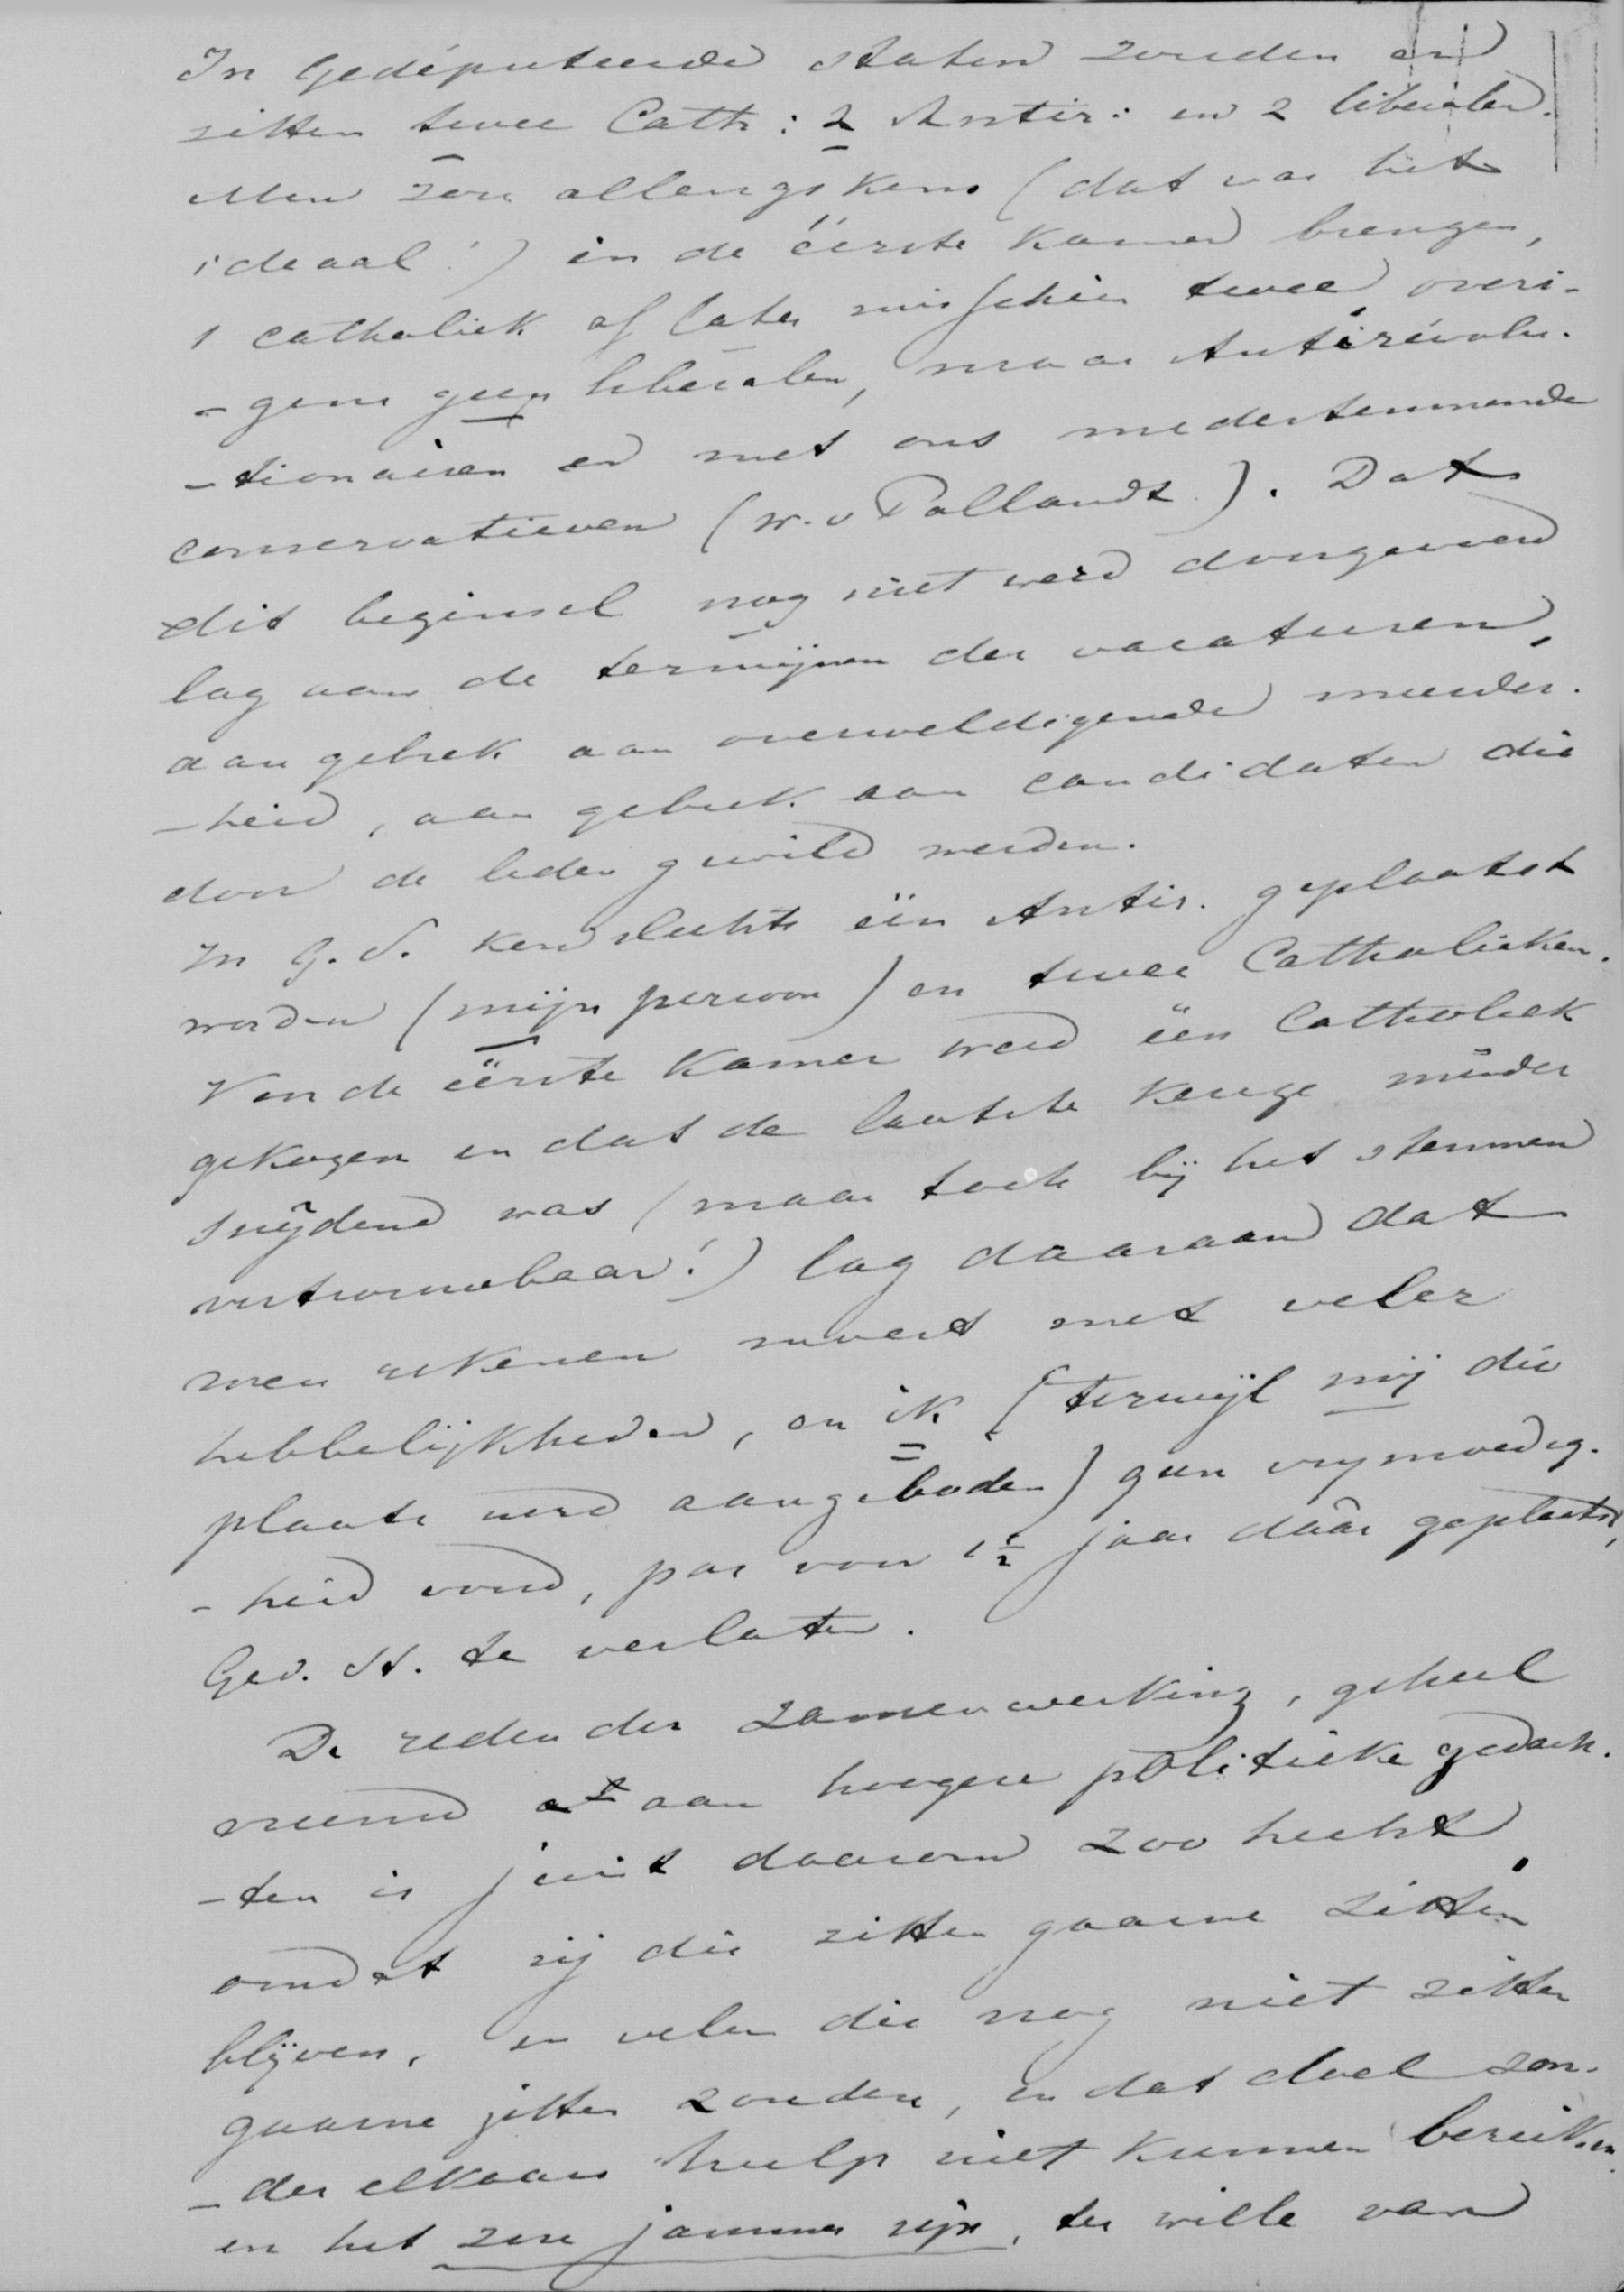 In Gedéputeerde Staten zouden er
zitten twee Cath: 2 Antir: en 2 liberalen.
Men zou allengskens (dat was het
ideaal!) in de éerste Kamer brengen,
1 catholiek of later misschien twee overi-
-gens geen liberalen, maar Antirévolu-
-tionairen en met ons medestemmende
conservatieven (W. v Pallandt). Dat
dit beginsel nog niet werd doorgevoerd
lag aan de termijnen der vacaturen,
aan gebrek aan overweldigende meerder-
-heid, aan gebrek aan candidaten die
door de leden gewild werden.
In G.S. kon slechts één Antir. geplaatst
worden (mijn persoon) en twee Catholieken.
Van de éérste Kamer werd één Catholiek
gekozen en dat de laatste keuze minder
snijdend was (maar toch bij het stemmen
vertrouwbaar!) lag daaraan dat
men rekenen moest met veler
hebbelijkheden, en ik (terwijl mij die
plaats werd aangeboden) geen vrijmoedig-
-heid vond, pas voor 1½ jaar dáár geplaatst,
Ged. St. te verlaten.
De reden der zamenwerking, geheel
vreemd aan hoogere politieke gedach-
-ten is juist daarom zoo hecht
omdat zij die zitten gaarne zitten
blijven, en velen die nog niet zitten
gaarne zitten zouden, en dat doel zon-
-der elkaars hulp niet kunnen bereiken
en het zou jammer zijn, ter wille van